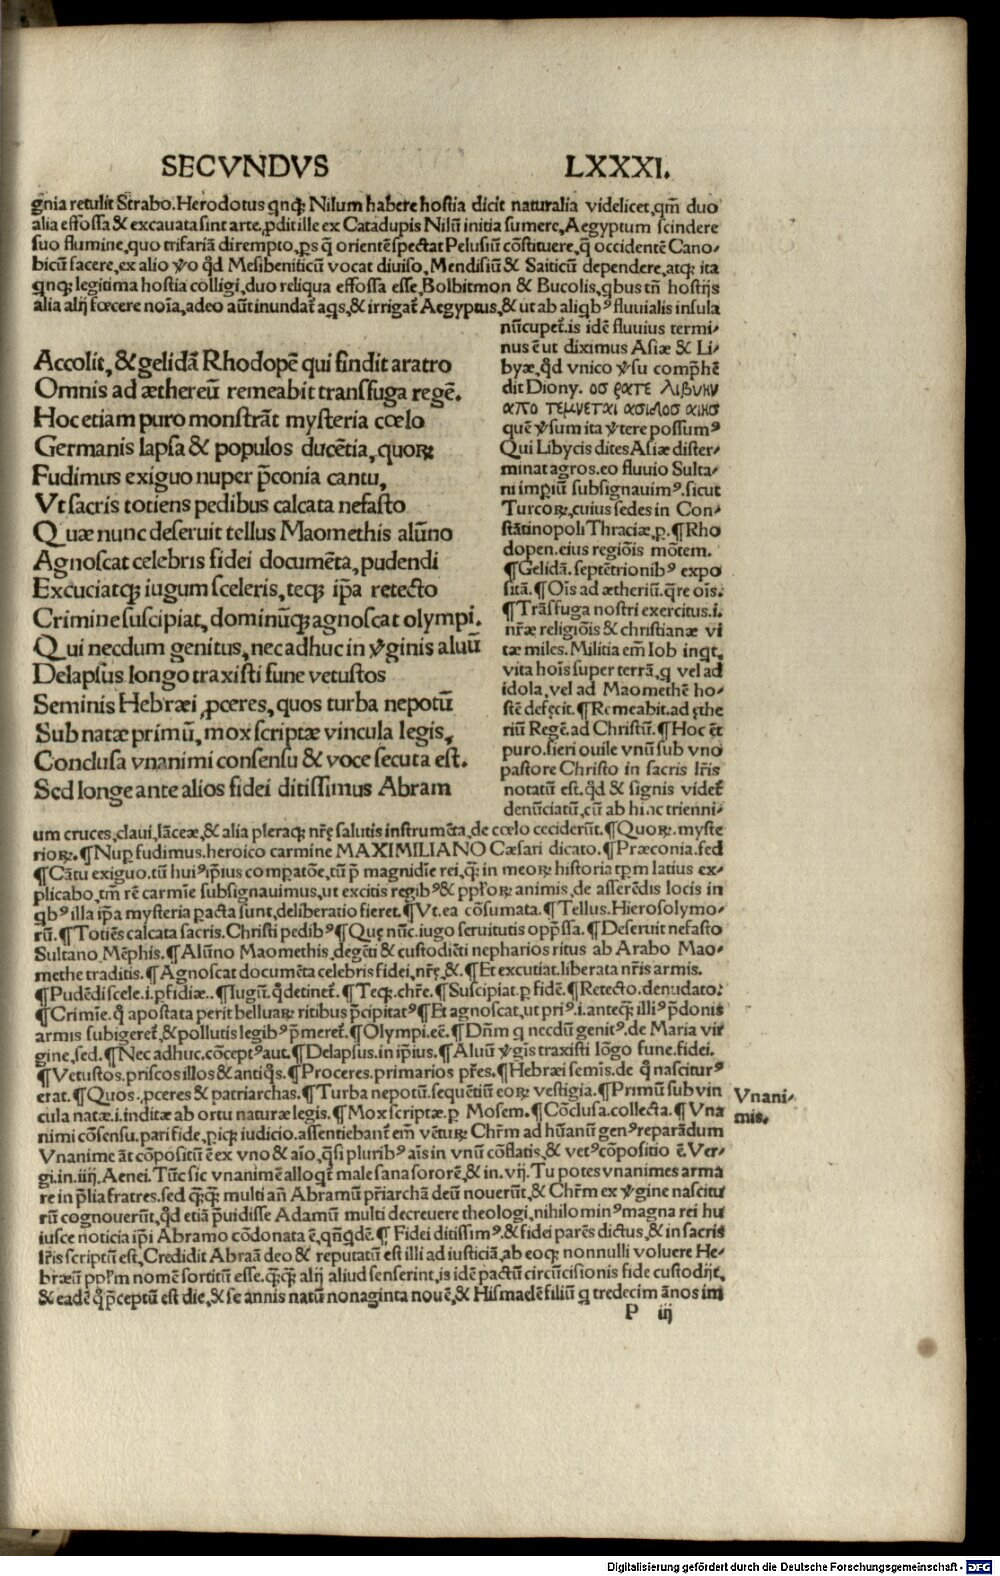 SECVNDVS LXXXI.
gnia retulit Strabo. Herodotus qnqꝫ Nilum habere hostia dicit naturalia videlicet, qm̄ duo
alia effossa & excauata sint arte, ꝓdit ille ex Catadupis Nilū initia sumere, Aegyptum scindere
suo flumine, quo trifariā dirempto, ꝑs q̄ orientē spectat Pelusiū cōstituere, q̄ occidentē Cano-
bicū facere, ex alio v̓o qd̓ Mesibeniticū vocat diuiso, Mendisiū & Saiticū dependere, atqꝫ ita
qnqꝫ legitima hostia colligi, duo reliqua effossa esse, Bolbitmon & Bucolis, qbus tn̄ hostijs
alia alij fœcere noīa, adeo aūt inundat̓ aqs, & irrigat̓ Aegyptus, & ut ab aliqbꝰ fluuialis insula
nūcupet̓. is idē fluuius termi-
nus ē ut diximus Asiæ & Li-
byæ, qd̓ vnico v̓su comp̄hē
dit Diony. οσ ρατε λιβυκυ
απο τεμνεται ασιλοσ αικσ
quē v̓sum ita v̓tere possumꝰ
Qui Libycis dites Asiæ dister-
minat agros. eo fluuio Sulta-
ni imꝑiū subsignauimꝰ. sicut
Turcoꝝ, cuius sedes in Con-
stātinopoli Thraciæ, ꝑ. ¶Rho
dopen. eius regiōis mōtem.
¶Gelidā. septētrionibꝰ expo
sitā. ¶Oīs ad ætheriū. qre oīs.
¶Trāsfuga nostri exercitus. i.
nr̄æ religiōis & christianæ vi
tæ miles. Militia em̄ Iob inqt,
vita hoīs super terrā, q vel ad
idola, vel ad Maomethē ho-
stē defęcit. ¶Remeabit. ad ęthe
riū Regē. ad Christū. ¶Hoc ēt
puro. fieri ouile vnū sub vno
pastore Christo in sacris lr̄is
notatū est. qd̓ & signis videt̓
denūciatū, cū ab hinc trienni-
Accolit, & gelidā Rhodopē qui findit aratro
Omnis ad æthereū remeabit transfuga regē.
Hoc etiam puro monstrāt mysteria cœlo
Germanis lapsa & populos ducētia, quoꝝ
Fudimus exiguo nuper p̄conia cantu,
Vt sacris totiens pedibus calcata nefasto
Quæ nunc deseruit tellus Maomethis alūno
Agnoscat celebris fidei documēta, pudendi
Excuciatqꝫ iugum sceleris, teqꝫ ip̄a retecto
Crimine suscipiat, dominūqꝫ agnoscat olympi.
Qui necdum genitus, nec adhuc in v̓ginis aluū
Delapsus longo traxisti fune vetustos
Seminis Hebræi ꝓceres, quos turba nepotū
Sub natæ primū, mox scriptæ vincula legis,
Conclusa vnanimi consensu & voce secuta est.
Sed longe ante alios fidei ditissimus Abram
um cruces, claui, lāceæ, & alia pleraqꝫ nr̄ę salutis instrumēta, de cœlo ceciderūt. ¶Quoꝝ. myste
rioꝝ. ¶Nuꝑ fudimus. heroico carmine MAXIMILIANO Cæsari dicato. ¶Præconia. fed
¶Cātu exiguo. tū huiꝰ ip̄ius comparatōe, tū p̄ magnidīe rei, qꝫ in meoꝝ historia tꝑm latius ex-
plicabo, tm̄ rē carmīe subsignauimus, ut excitis regibꝰ & ppl̓oꝝ animis, de asserēdis locis in
qbꝰ illa ip̄a mysteria ꝑacta sunt, deliberatio fieret. ¶Vt. ea cōsumata. ¶Tellus. Hierosolymo-
rū. ¶Totiēs calcata sacris. Christi pedibꝰ ¶Quę nūc. iugo seruitutis opp̄ssa. ¶Deseruit nefasto
Sultano Mēphis. ¶Alūno Maomethis, degēti & custodiēti nepharios ritus ab Arabo Mao-
methe traditis. ¶Agnoscat documēta celebris fidei, nr̄ę, &. ¶Et excutiat. liberata nr̄is armis.
¶Pudēdi scele. i. ꝑfidiæ.. ¶Iugū. qd̓ detinet̓. ¶Teqꝫ. chr̄e. ¶Suscipiat. ꝑ fidē. ¶Retecto. denudato:
¶Crimīe. q̓ apostata perit belluaꝝ ritibus p̄cipitatꝰ ¶Et agnoscat, ut priꝰ. i. anteqꝫ illiꝰ p̄donis
armis subigeret̓, & pollutis legibꝰ p̄meret̓. ¶Olympi. cē. ¶Dn̄m q necdū genitꝰ. de Maria vir
gine, sed. ¶Nec adhuc. cōceptꝰ aut. ¶Delapsus. in ip̄ius. ¶Aluū v̓gīs traxisti lōgo fune. fidei.
¶Vetustos. priscos illos & antiq̓s. ¶Proceres. primarios pr̄es. ¶Hebræi semis. de q̓ nasciturꝰ
erat. ¶Quos. ꝓceres & patriarchas. ¶Turba nepotū. sequētiū eoꝝ vestigia. ¶Primū sub vin
cula natæ. i. inditæ ab ortu naturæ legis. ¶Mox scriptæ. ꝑ Mosem. ¶Cōclusa. collecta. ¶Vna
nimi cōsensu. pari fide, ꝑiqꝫ iudicio. assentiebant̓ em̄ vētuꝝ Chr̄m ad hūanū genꝰ reparādum
Vnanime āt cōpositū ē ex vno & aīo, q̓si pluribꝰ aīs in vnū cōflatis, & vetꝰ cōpositio ē. Ver-
gi. in. iiij. Aenei. Tūc sic vnanimē alloqt̓ male sana sororē, & in. vij. Tu potes vnanimes arma
re in p̄lia fratres. sed qꝫqꝫ multi añ Abramū pr̄iarchā deū nouerūt, & Chr̄m ex v̓gine nascitu
rū cognouerūt, qd̓ etiā p̄uidisse Adamū multi decreuere theologi, nihilominꝰ magna rei hu
iusce noticia ip̄i Abramo cōdonata ē, qn̄qdē. ¶ Fidei ditissimꝰ. & fidei parēs dictus, & in sacris
lr̄is scriptū est, Credidit Abraā deo & reputatū est illi ad iusticiā, ab eoqꝫ nonnulli voluere He-
bræū ppl̓m nomē sortitū esse. qꝫqꝫ alij aliud senserint, is idē pactū circūcisionis fide custodijt,
& eadē q̓ p̄ceptū est die, & se annis natū nonaginta nouē, & Hismaelē filiū q tredecim ānos im
Vnani-
mis.
P iij
Digitalisierung gefördert durch die Deutsche Forschungsgemeinschaft - DFG